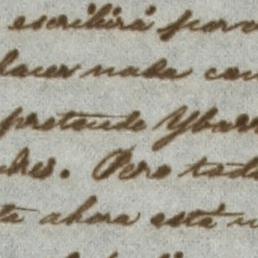 escribirá para
hacer nada con
pretende Ybar
dres. Pero toda
ta ahora está